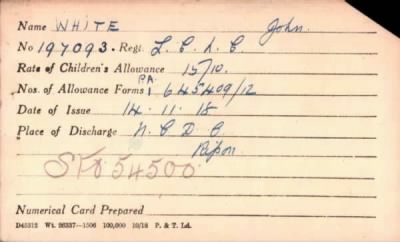 Name WHITE John.
No 197093. Regt. L.C.L.C
Rate of Children's Allowance 15/10.
P.A.
Nos. of Allowance Forms 1 645409/12
Date of Issue 14. 11. 18
Place of Discharge N C D C
Ripon
S 54500
Numerical Card Prepared
D45312 Wt. 26337—1506 100,000 10/18 P. & T. Ld.